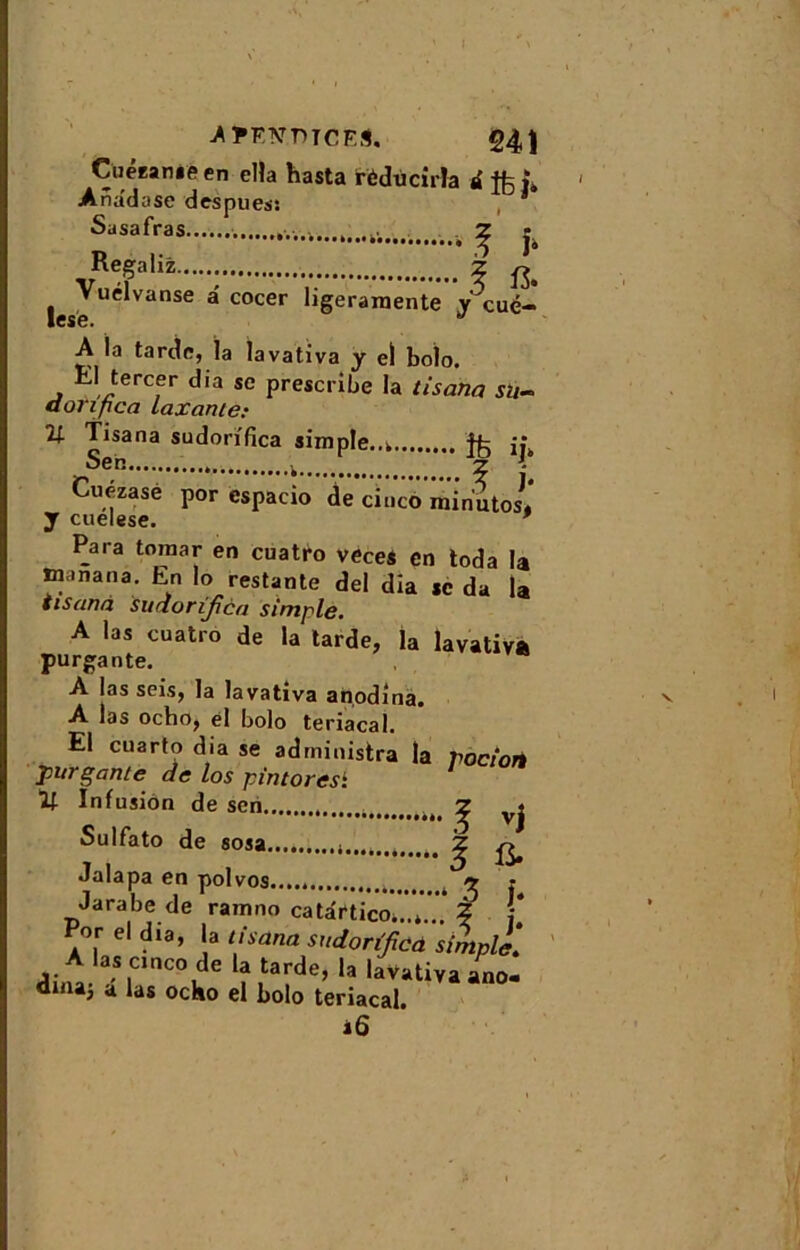 APENDICES. 241
Cuézanse en ella hasta reducirla á ℔ j.
Añádase despues:
Sasafras.................................. ℥ j.
Regaliz................................... ℥ ß.
Vuélvanse á cocer ligeramente y cué-
lese.
A la tarde, la lavativa y el bolo.
El tercer dia se prescribe la tisana su-
dorífica laxante:
♃ Tisana sudorífica simple........... ℔ ij.
Sen........................................ ℥ j.
Cuézase por espacio de cinco minutos,
y cuélese.
Para tomar en cuatro veces en toda la
mañana. En lo restante del dia se da la
tisana sudorífica simple.
A las cuatro de la tarde, la lavativa
purgante.
A las seis, la lavativa anodina.
A las ocho, el bolo teriacal.
El cuarto dia se administra la pocion
purgante de los pintores:
♃ Infusion de sen........................ ℥ vj
Sulfato de sosa.......................... ℥ ß.
Jalapa en polvos......................... ʒ j.
Jarabe de ramno catártico....... ℥ j.
Por el dia, la tisana sudorífica simple.
A las cinco de la tarde, la lavativa ano-
dina; á las ocho el bolo teriacal.
16